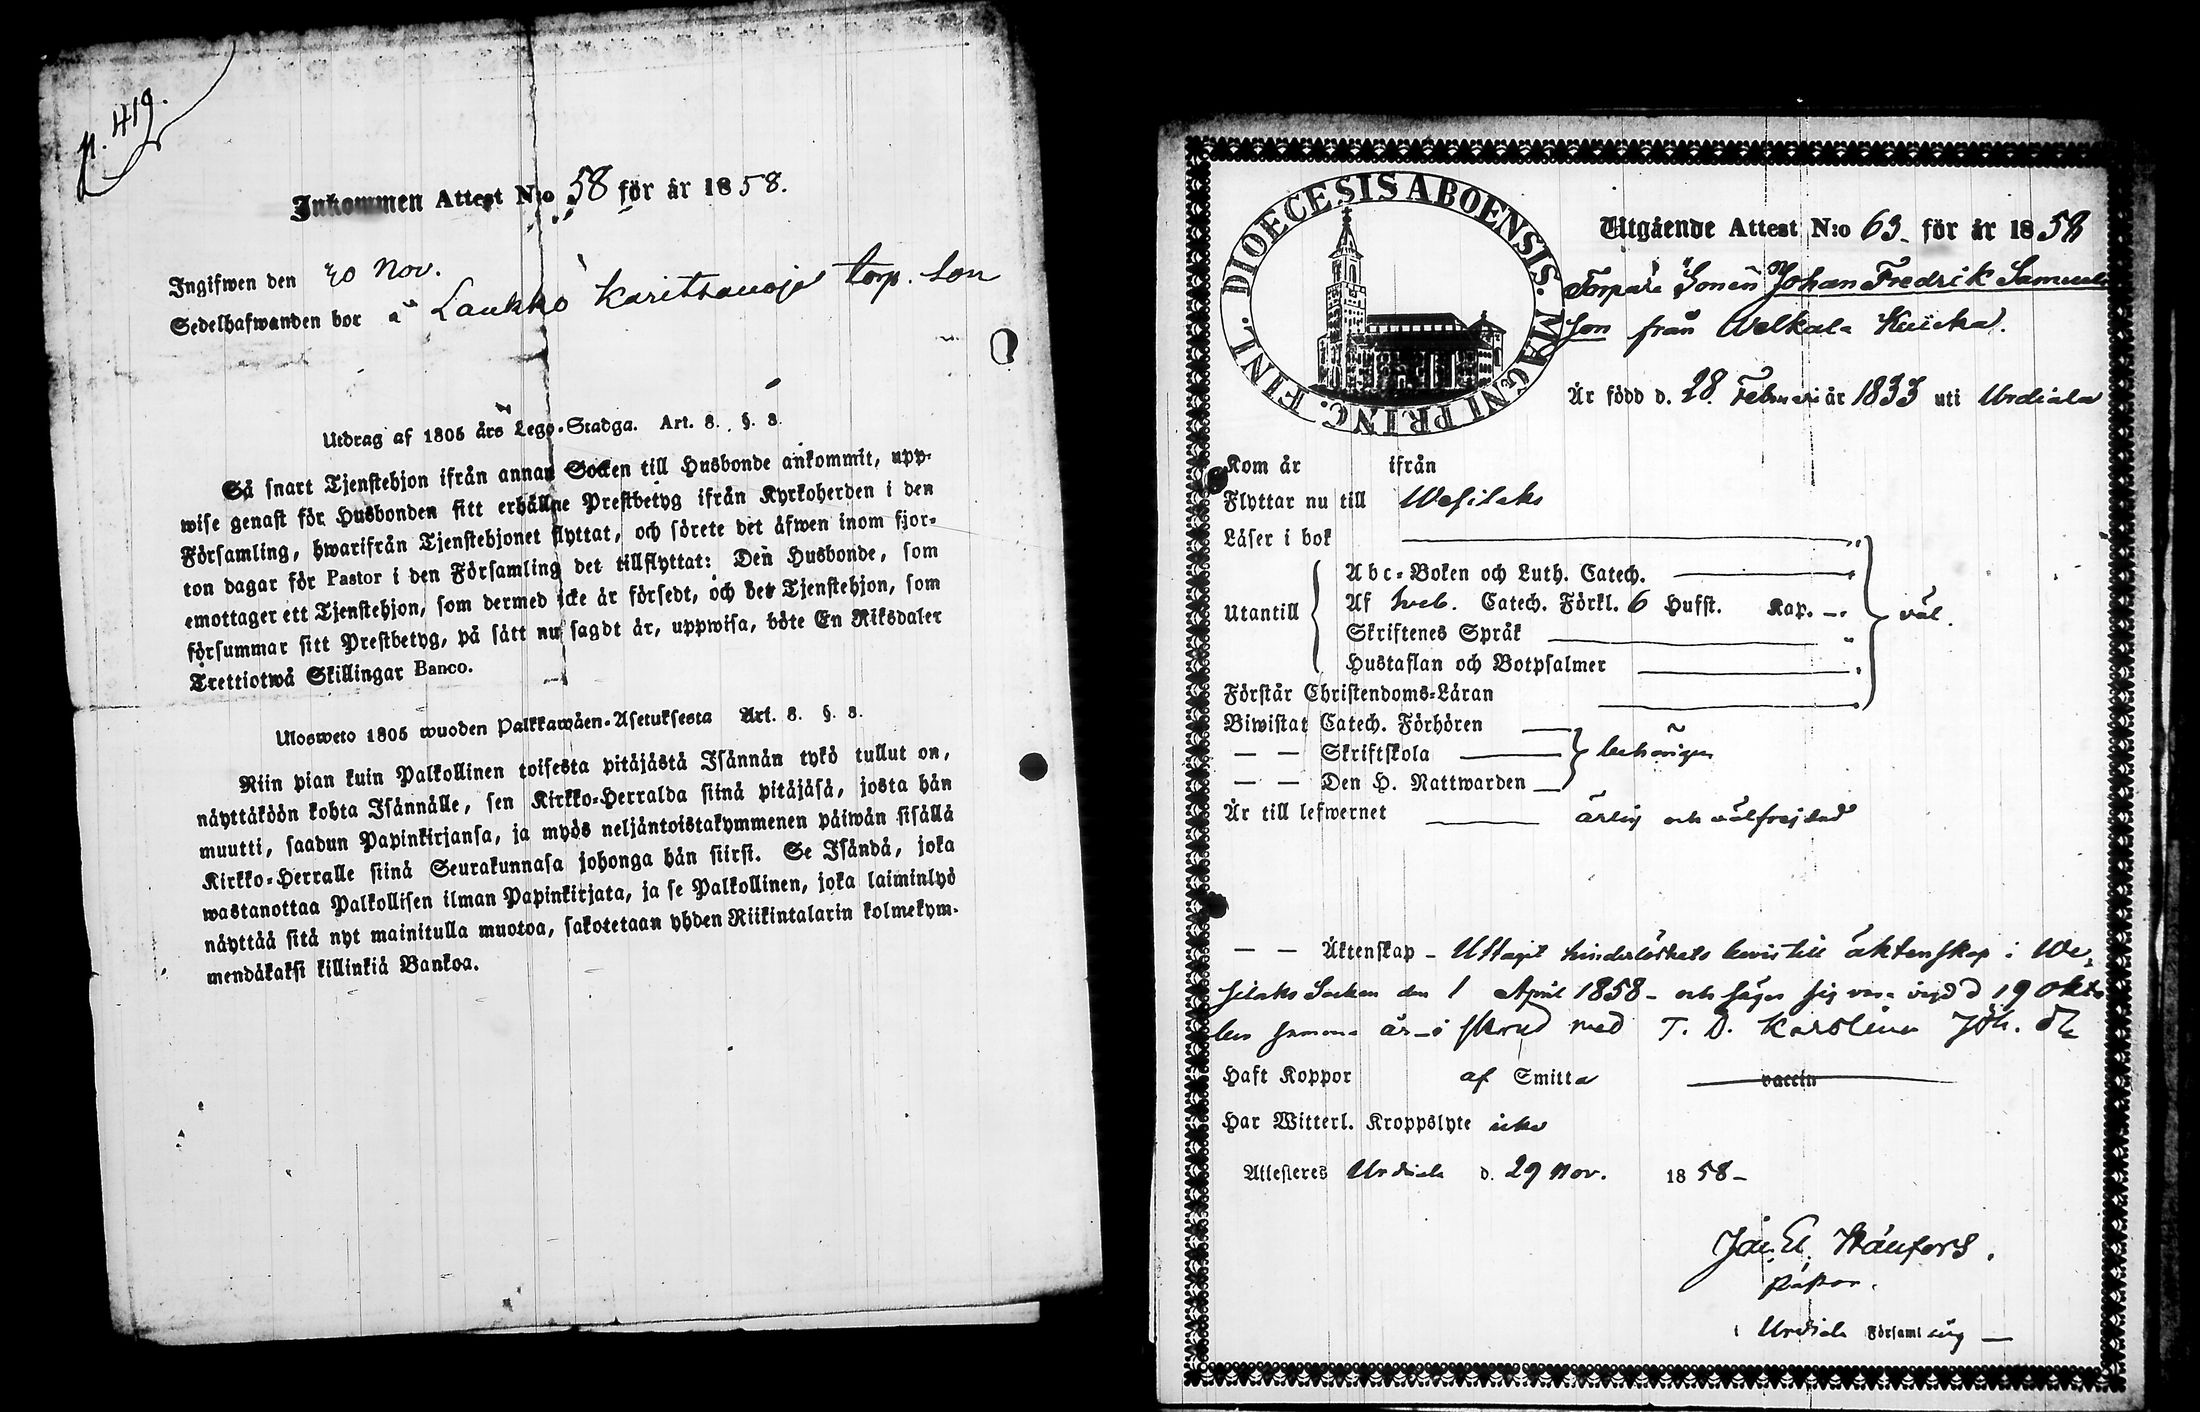 p. 419.
Inkommen Attest N:o 58 för år 1858.
Ingifwen den 30 Nov.
Sedelhafwanden bor å Laukko Karitsanoja torp. son
Utdrag af 1805 års Lego-Stadga. Art. 8. §. 8.
Så snart Tjenstehjon ifrån annan Socken till Husbonde ankommit, upp-
wise genast för Husbonden sitt erhållne Prestbetyg ifrån Kyrkoherden i den
Församling, hwarifrån Tjenstehjonet flyttat, och förete det äfwen inom fjor-
ton dagar för Pastor i den Församling det tillflyttat: Den Husbonde, som
emottager ett Tjenstehjon, som dermed icke är försedt, och det Tjenstehjon, som
försummar sitt Prestbetyg, på sätt nu sagdt är, uppwisa, böte En Riksdaler
Trettiotwå Skillingar Banco.
Ulosweto 1805 wuoden Palkkawäen-Asetuksesta Art. 8. §. 8.
Niin pian kuin Palkollinen toisesta pitäjästä Isännän tykö tullut on,
näyttäköön kohta Isännälle, sen Kirkko-Herralda siinä pitäjäsä, josta hän
muutti, saadun Papinkirjansa, ja myös neljäntoistakymmenen päiwän sisällä
Kirkko-Herralle siinä Seurakunnasa johonga hän siirsi. Se Isändä, joka
wastanottaa Palkollisen ilman Papinkirjata, ja se Palkollinen, joka laiminlyö
näyttää sitä nyt mainitulla muotoa, sakotetaan yhden Riikintalarin kolmekym-
mendäkaksi killinkiä Bankoa.
DIOECESIS ABOENSIS. MAGNI PRINC. FINL.
Utgående Attest N:o 63 för år 1858
Torpare Sonen Johan Fredrik Samuels
son från Welkala Kuicka.
Är född d. 28. Februari år 1833 uti Urdiala
Kom år ifrån
Flyttar nu till Wesilaks
Läser i bok
Abc-Boken och Luth. Catech.
Utantill Af Sveb. Catech. Förkl. 6 Hufst. Kap. väl.
Skriftenes Språk
Hustaflan och Botpsalmer
Förstår Christendoms-Läran
Biwistat Catech. Förhören
— — Skriftskola behörigen
— — Den H. Nattwarden
Är till lefwernet ärlig och välfrejdad
— — Äktenskap - Uttagit hinderlöshets bevis till äktenskap i We-
silaks Socken den 1 April 1858 - och säges sig vara vigd d 19 Okto
ber samma år - i förbund med T. D. Karolina Joh. dr
Haft Koppor af Smitta vaccin
Har Witterl. Kroppslyte icke
Attesteres Urdiala d. 29 Nov. 1858 -
Joh. El. Ståhlfors.
Pastor.
i Urdiala Församling —